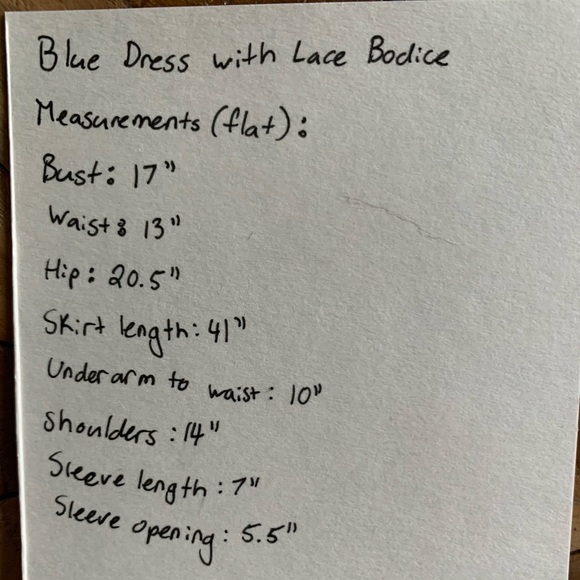 Blue Dress with Lace Bodice
Measurements (flat):
Bust: 17"
Waist: 13"
Hip: 20.5"
Skirt length: 41"
Underarm to waist: 10"
Shoulders: 14"
Sleeve length: 7"
Sleeve opening: 5.5"